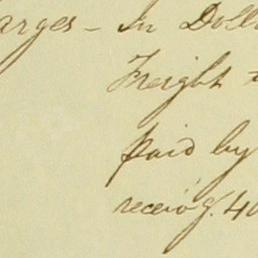 arges - In Doll
Freight
paid by
receivg. 40